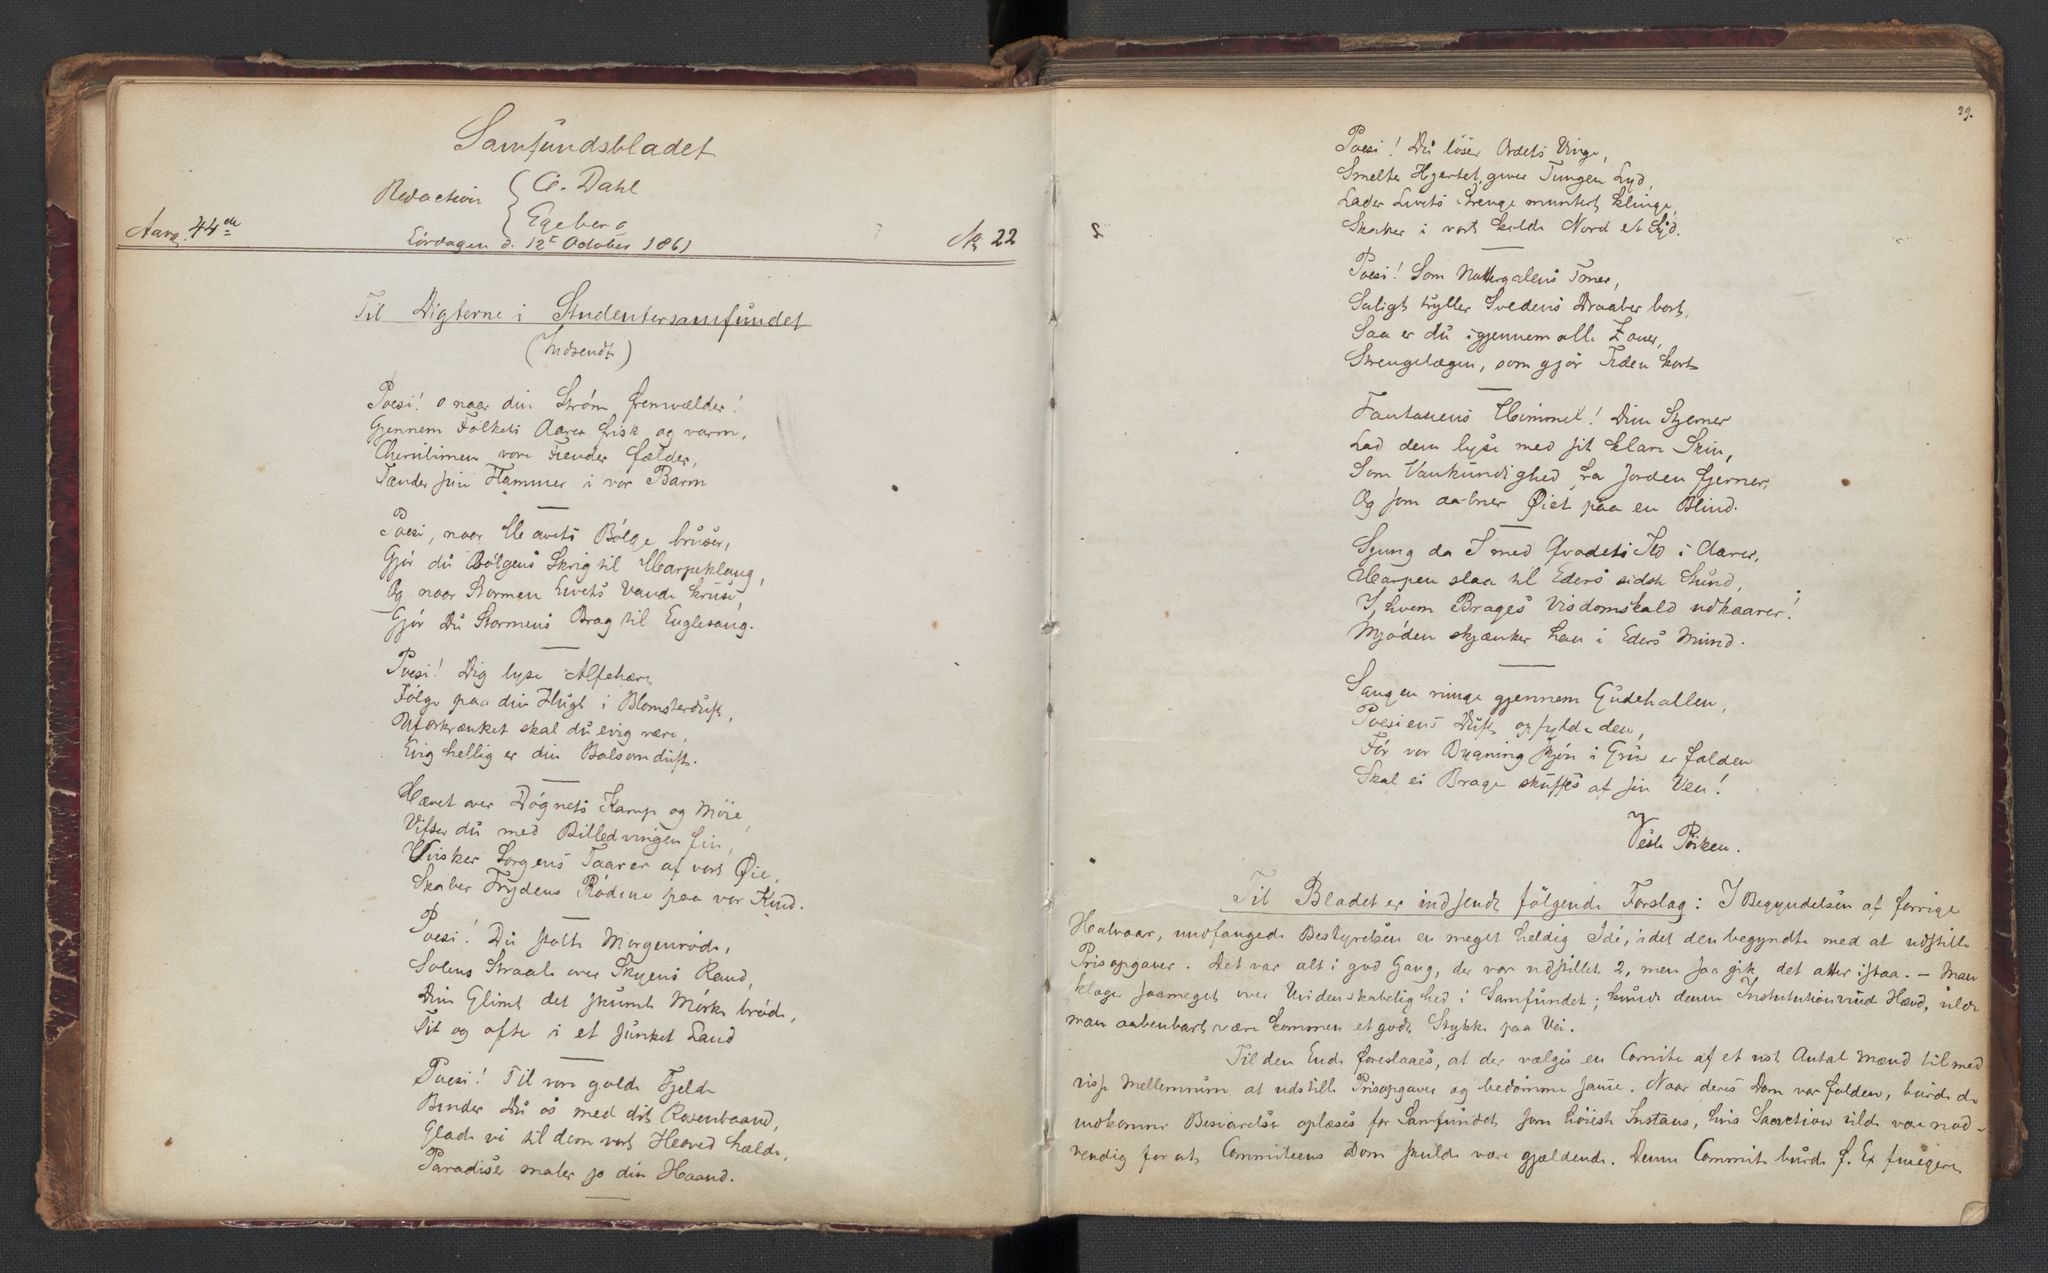 Samfundsbladet
Redaction { C. Dahl
Egeberg
Aarg. 44de
Lördagen d. 12te October 1861
No 22
Til Digterne i Studentersamfundet
(Indsendt)
Poesi! o naar din Ström fremvælder!
Gjennem Folkets Aarer frisk og varm,
Cherubimen vore Fiender fælder,
Tænder sine Flammer i vor Barm
Poesi, naar Havets Bölge bruser,
Gjör du Bölgens Skrig til Harpeklang,
Og naar Stormen Livets Vande kruser,
Gjör Du Stormens Brag til Englesang.
Poesi! Dig lyse Alfehære
Fölge paa din Flugt i Blomsterduft,
Uforkrænket skal du evig være,
Evig hellig er din Balsomduft.
Hævet over Dögnets Kamp og Möie,
Vifter du med Billedvingen fin,
Visker Sorgens Taarer af vort Øie,
Skaber Frydens Rödme paa vor Kind.
Poesi! Du stolte Morgenröde,
Solens Straale over Skyens Rand,
Din Glimt det skumle Mörke bröde,
Tit og ofte i et sunket Land
Poesi! Til vore golde Fjelde
Binder Du os med dit Rosenbaand,
Glade vi til dem vort Hoved hælde,
Paradiser maler jo din Haand.
29.
Poesi! Du löser Ordets Vinge,
Smelter Hjertet, giver Tungen Lyd,
Lader Livets Strenge muntert klinge,
Skaber i vort kolde Nord et Syd.
Poesi! Som Nattergalens Toner,
Saligt tryller Svedens Draaber bort,
Saa er du igjennem alle Zoner,
Strengelegen, som gjör Tiden kort
Fantasiens Himmel! Dine Stjerner
Lad dem lyse med sit klare Skin,
Som Vankundighed fra Jorden fjerner,
Og som aabner Øiet paa en Blind.
Sjung da I med Qvadets Ild i Aarer,
Harpen slaa til Eders sidste Stund,
I, hvem Brages Visdomskald udkaarer!
Mjöden skjænker han i Eders Mund.
Sangen ringe gjennem Gudehallen,
Poesiens Duft opfylde den,
För vor Bygning skjön i Grus er falden
Skal ei Brage skuffes af sin Ven!
Vesle Poiken.
Til Bladet er indsendt fölgende Forslag: I Begyndelsen af forrige
Halvaar, undfangede Bestyrelsen en meget heldig Idé, idet den begyndte med at udstille
Prisopgaver. Det var alt i god Gang, der var udstillet 2, men saa gik det atter istaa. — Man
klager saameget over Uvidenskabelighed i Samfundet; kunde denne Institution vinde Hævd, vilde
man aabenbart være kommen et godt Stykke paa Vei.
Til den Ende foreslaaes, at der vælges en Comite af et vist Antal Mænd til med
visse Mellemrum at udstille Prisopgaver og bedömme samme. Naar deres Dom var falden, burde de
indkomne Besvarelser oplæses for Samfundet som höieste Instans, hvis Sanction vilde var nød-
vendig for at Committeens Dom skulde være gjældende. Denne Committe burde f. Ex fungere